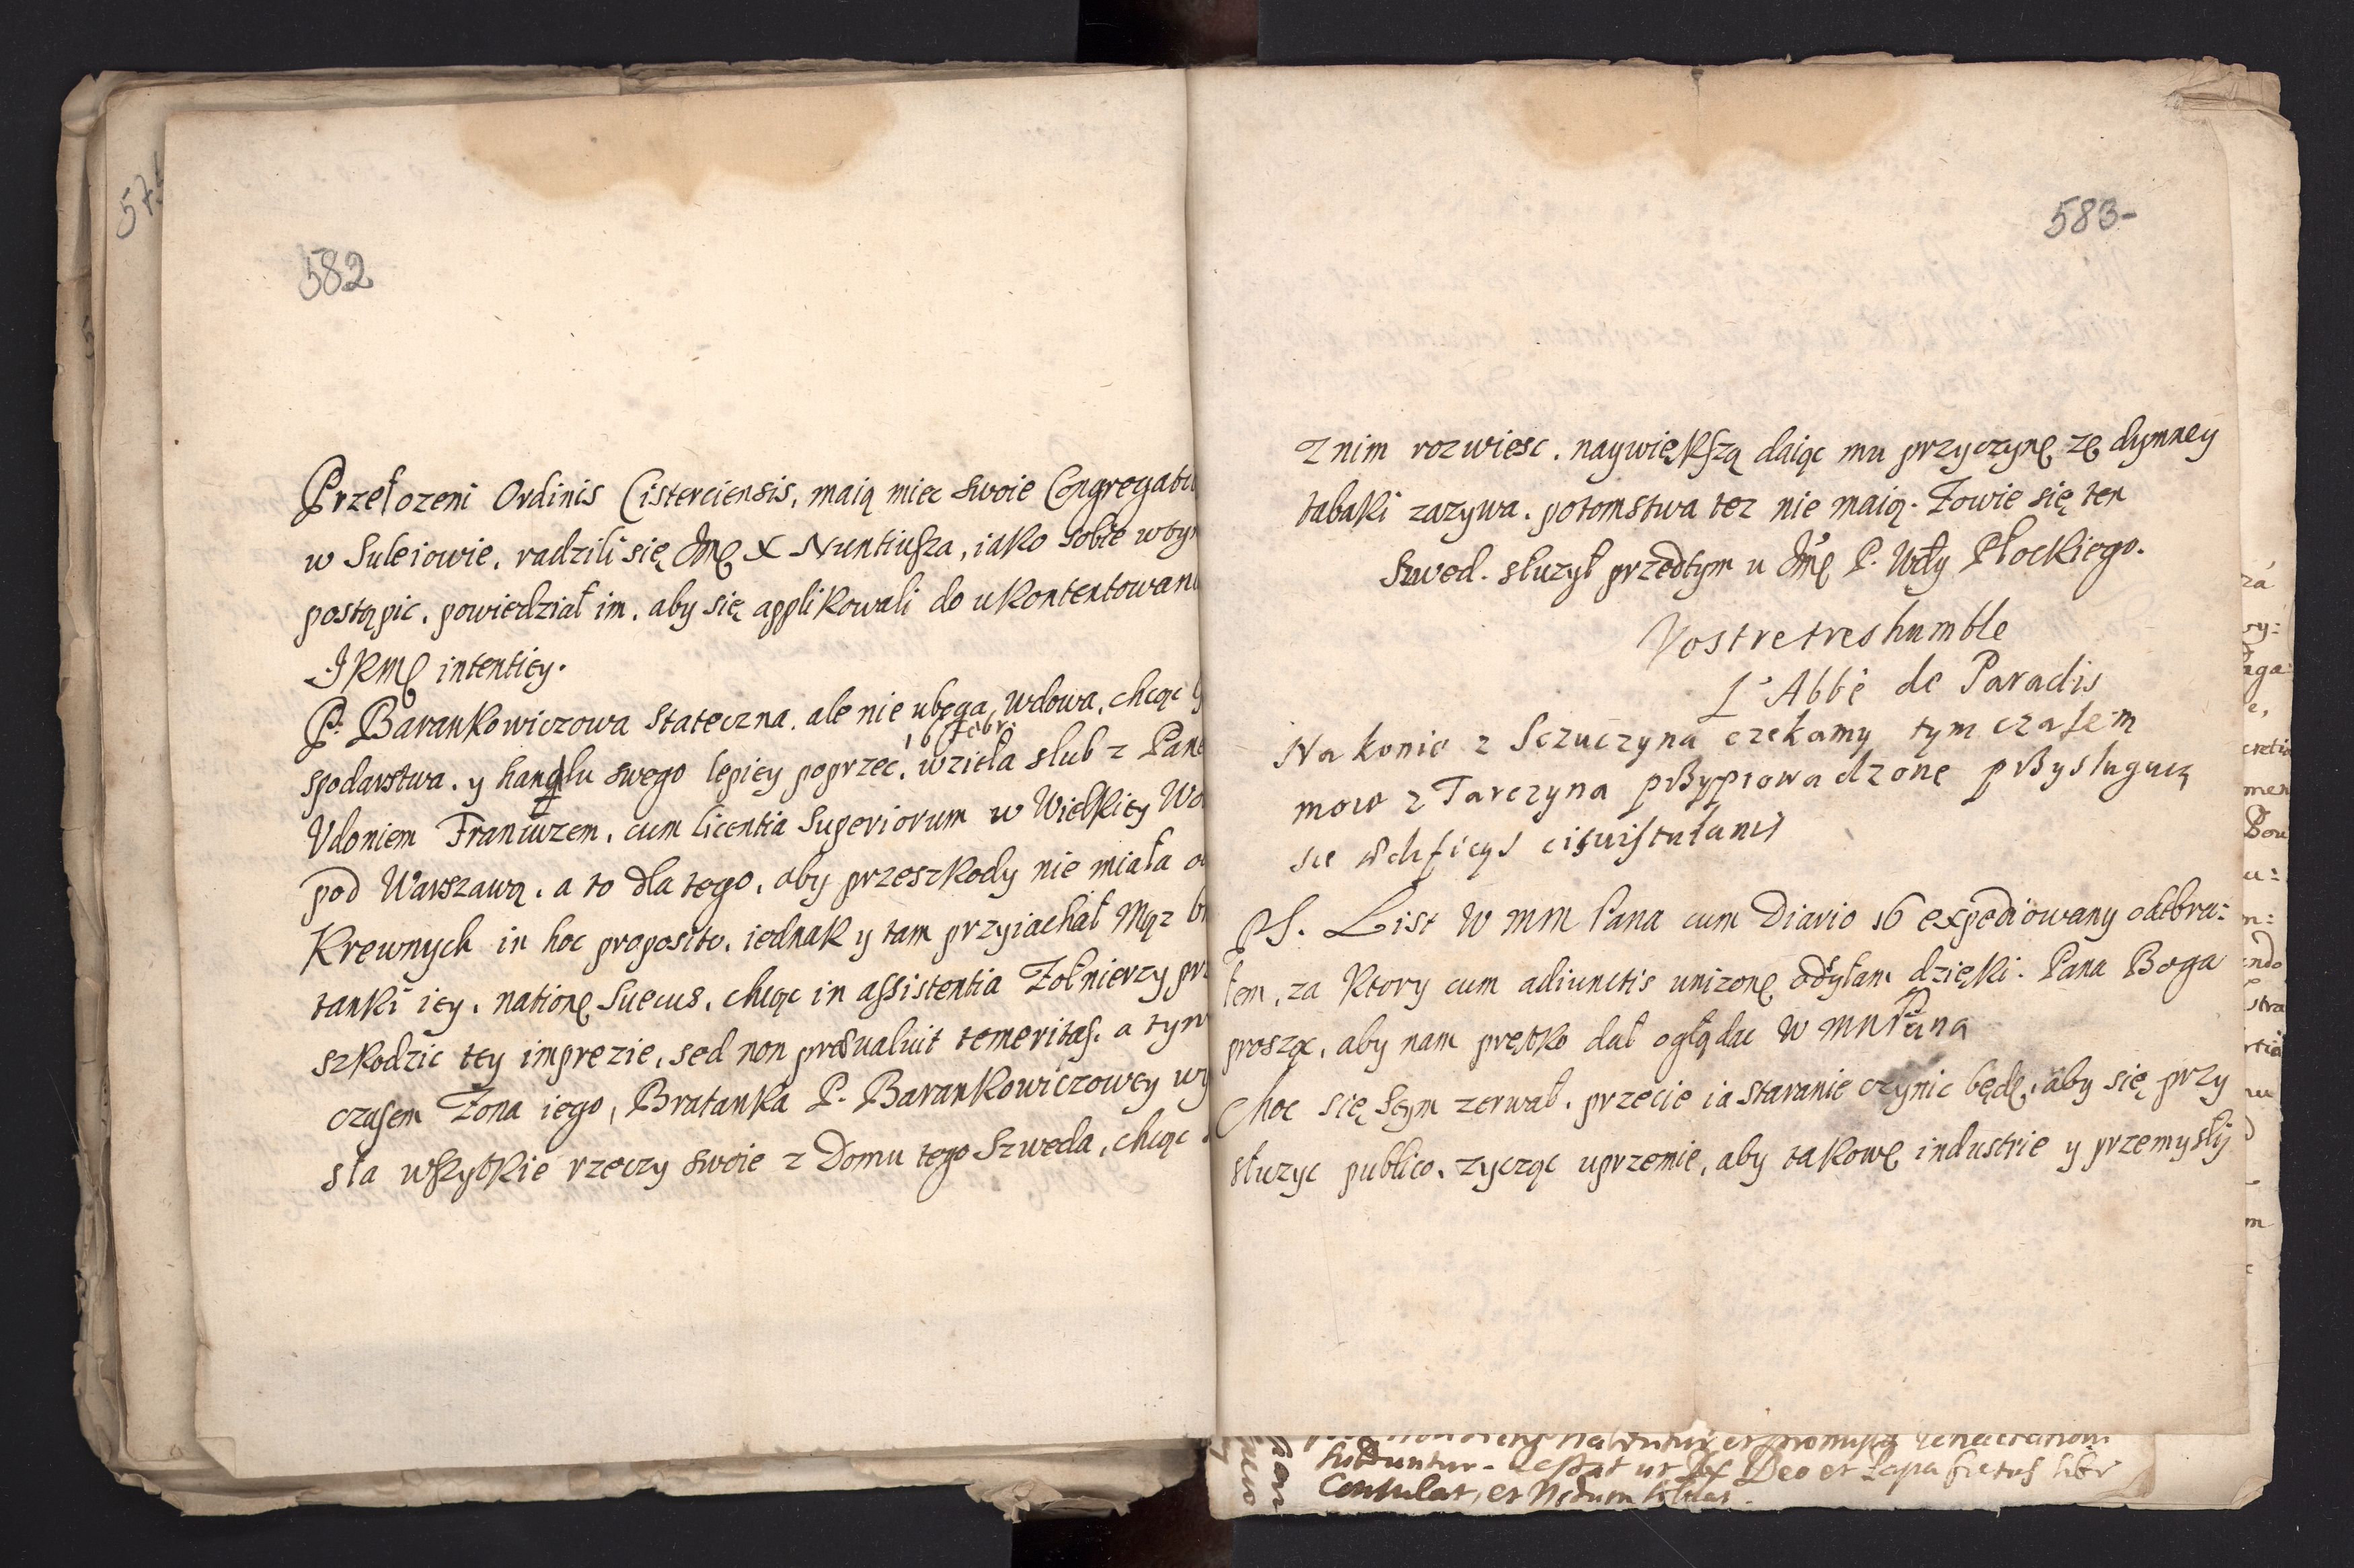 582
Przełozeni Ordinis Cisterciensis, maią miec swoie Congregatu
w Suleiowie, radzili się Jmę X Nuntiusza, iako sobie wtym
postąpic, powiedział im, aby się applikowali do ukontentowani
JKMę intentiey.
P. Barankowiczowa stateczna, ale nie uboga, wdowa, chcąc
16 Febr:
spodarstwa, y handlu swego lepiey poprzec, wzieła slub z Pane
Udoniem Francuzem, cum licentia Superiorum w Wielkiey Wo
pod Warszawą, a to dla tego, aby przeszkody nie miała o
Krewnych in hoc proposito, iednak y tam przyiachał Mąz br
tanki iey, natione Suecus, chcąc in assistentia Żołnierzy prz
szkodzic tey imprezie, sed non praevaluit temeritas, a tym
czasem Żona iego, Bratanka P. Barankowiczowey wy
sła wszytkie rzeczy swoie z Domu tego Szweda, chcąc
583-
z nim rozwiesc, naywiększą daiąc mu przyczynę zę dymney
tabaki zazywa. potomstwa tez nie maią. Zowie się ten
Szwed. słuzył przedtym u Jmę P. Wdy Płockiego.
Vostre tres humble
L'Abbé de Paradis
Na konie z Sczuczyna czekamy tym czasem
z Tarczyna przyprowadzone
sie
PS. List W MM Pana cum Diario 16 expediowany odebra:
łem, za ktory cum adiunctis unizone odsyłam dzięki. Pana Boga
prosząc, aby nam prętko dał oglądac W MM Pana
Choc się Seym zerwał, przecie ia staranie czynic będę, aby się przy
słuzyc publico, zycząc uprzemie, aby takowe industrie y przemysly